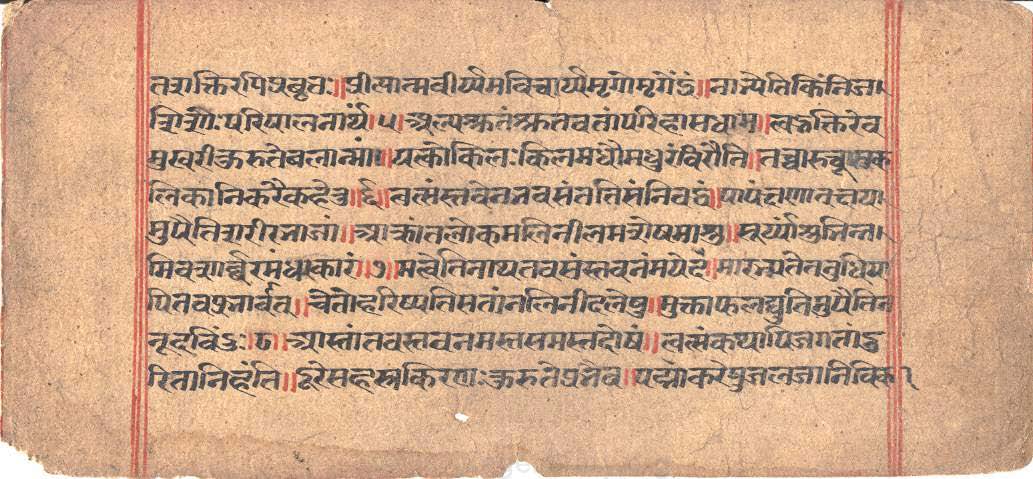 तशक्तिरपिप्रवृत्तः॥प्रीत्यात्मवीर्य्यमविचार्य्यमृगोमृगेंद्रं॥नाभ्येतिकिंनिजा
शिशोःपरिपालनार्थं।५।अल्पश्रुतंश्रुतवतांपरिहासधाम॥त्वद्भक्तिरेव
मुखरीकुरुतेबलान्मां॥यत्कोकिलःकिलमधौमधुरंविरौति॥तच्चारुचूतक
लिकानिकरैकहेतु॥६॥त्वत्संस्तवेनभवसंततिसंनिबद्धं॥पापंक्षणात्क्षया
मुपैतिशरीरभाजां॥आक्रांतलोकमलिनीलमशेषमाशु॥सूर्य्यांशुभिन्न।
मिवशार्वरमंधकारं॥७॥मत्वेतिनाथतवसंस्तवनंमयेदं॥मारभ्यतेतनुधिया
पितवप्रभावत्॥चेतोहरिष्यतिसतांनलिनीदलेषु॥मुक्ताफलद्युतिमुपैतिन
नूदविंदुः॥८॥आस्तांतवस्तवनमस्तसमस्तदोषं॥त्वत्संकथापिजगतांदु
रितानिहंति॥दूरेसहस्रकिरणःकुरुतेप्रभैव॥पद्माकरेषुजलजानिविका